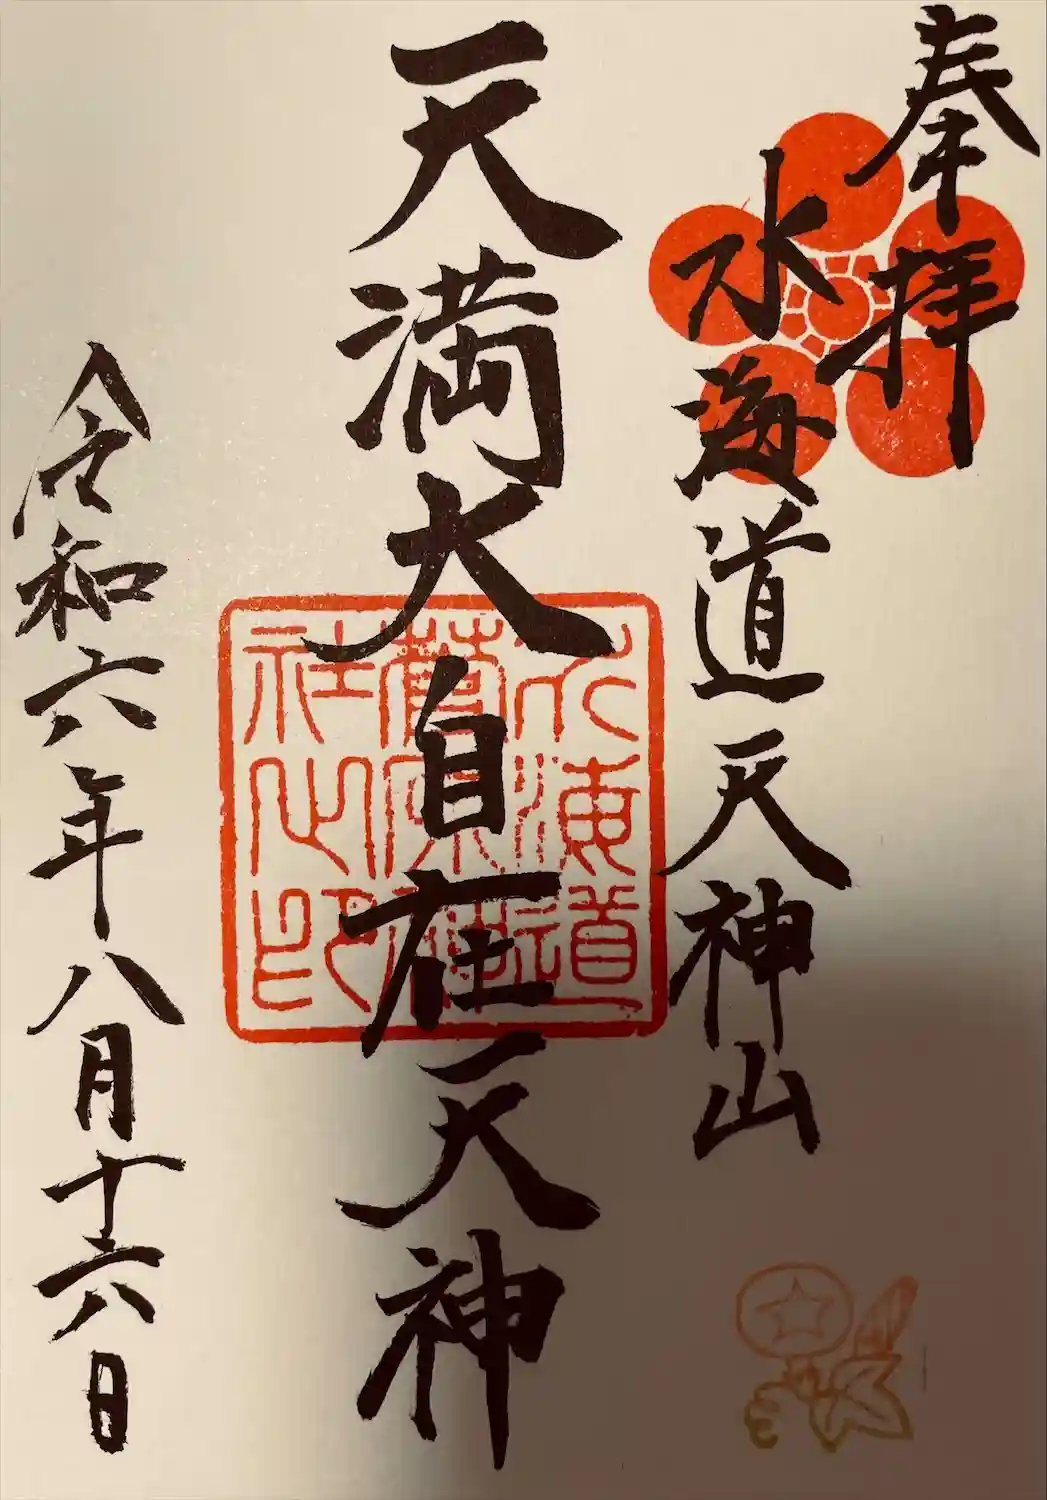 奉拝
水海道天神山
天満大自在天神
令和六年八月十六日
水海道
菅原神
社之印